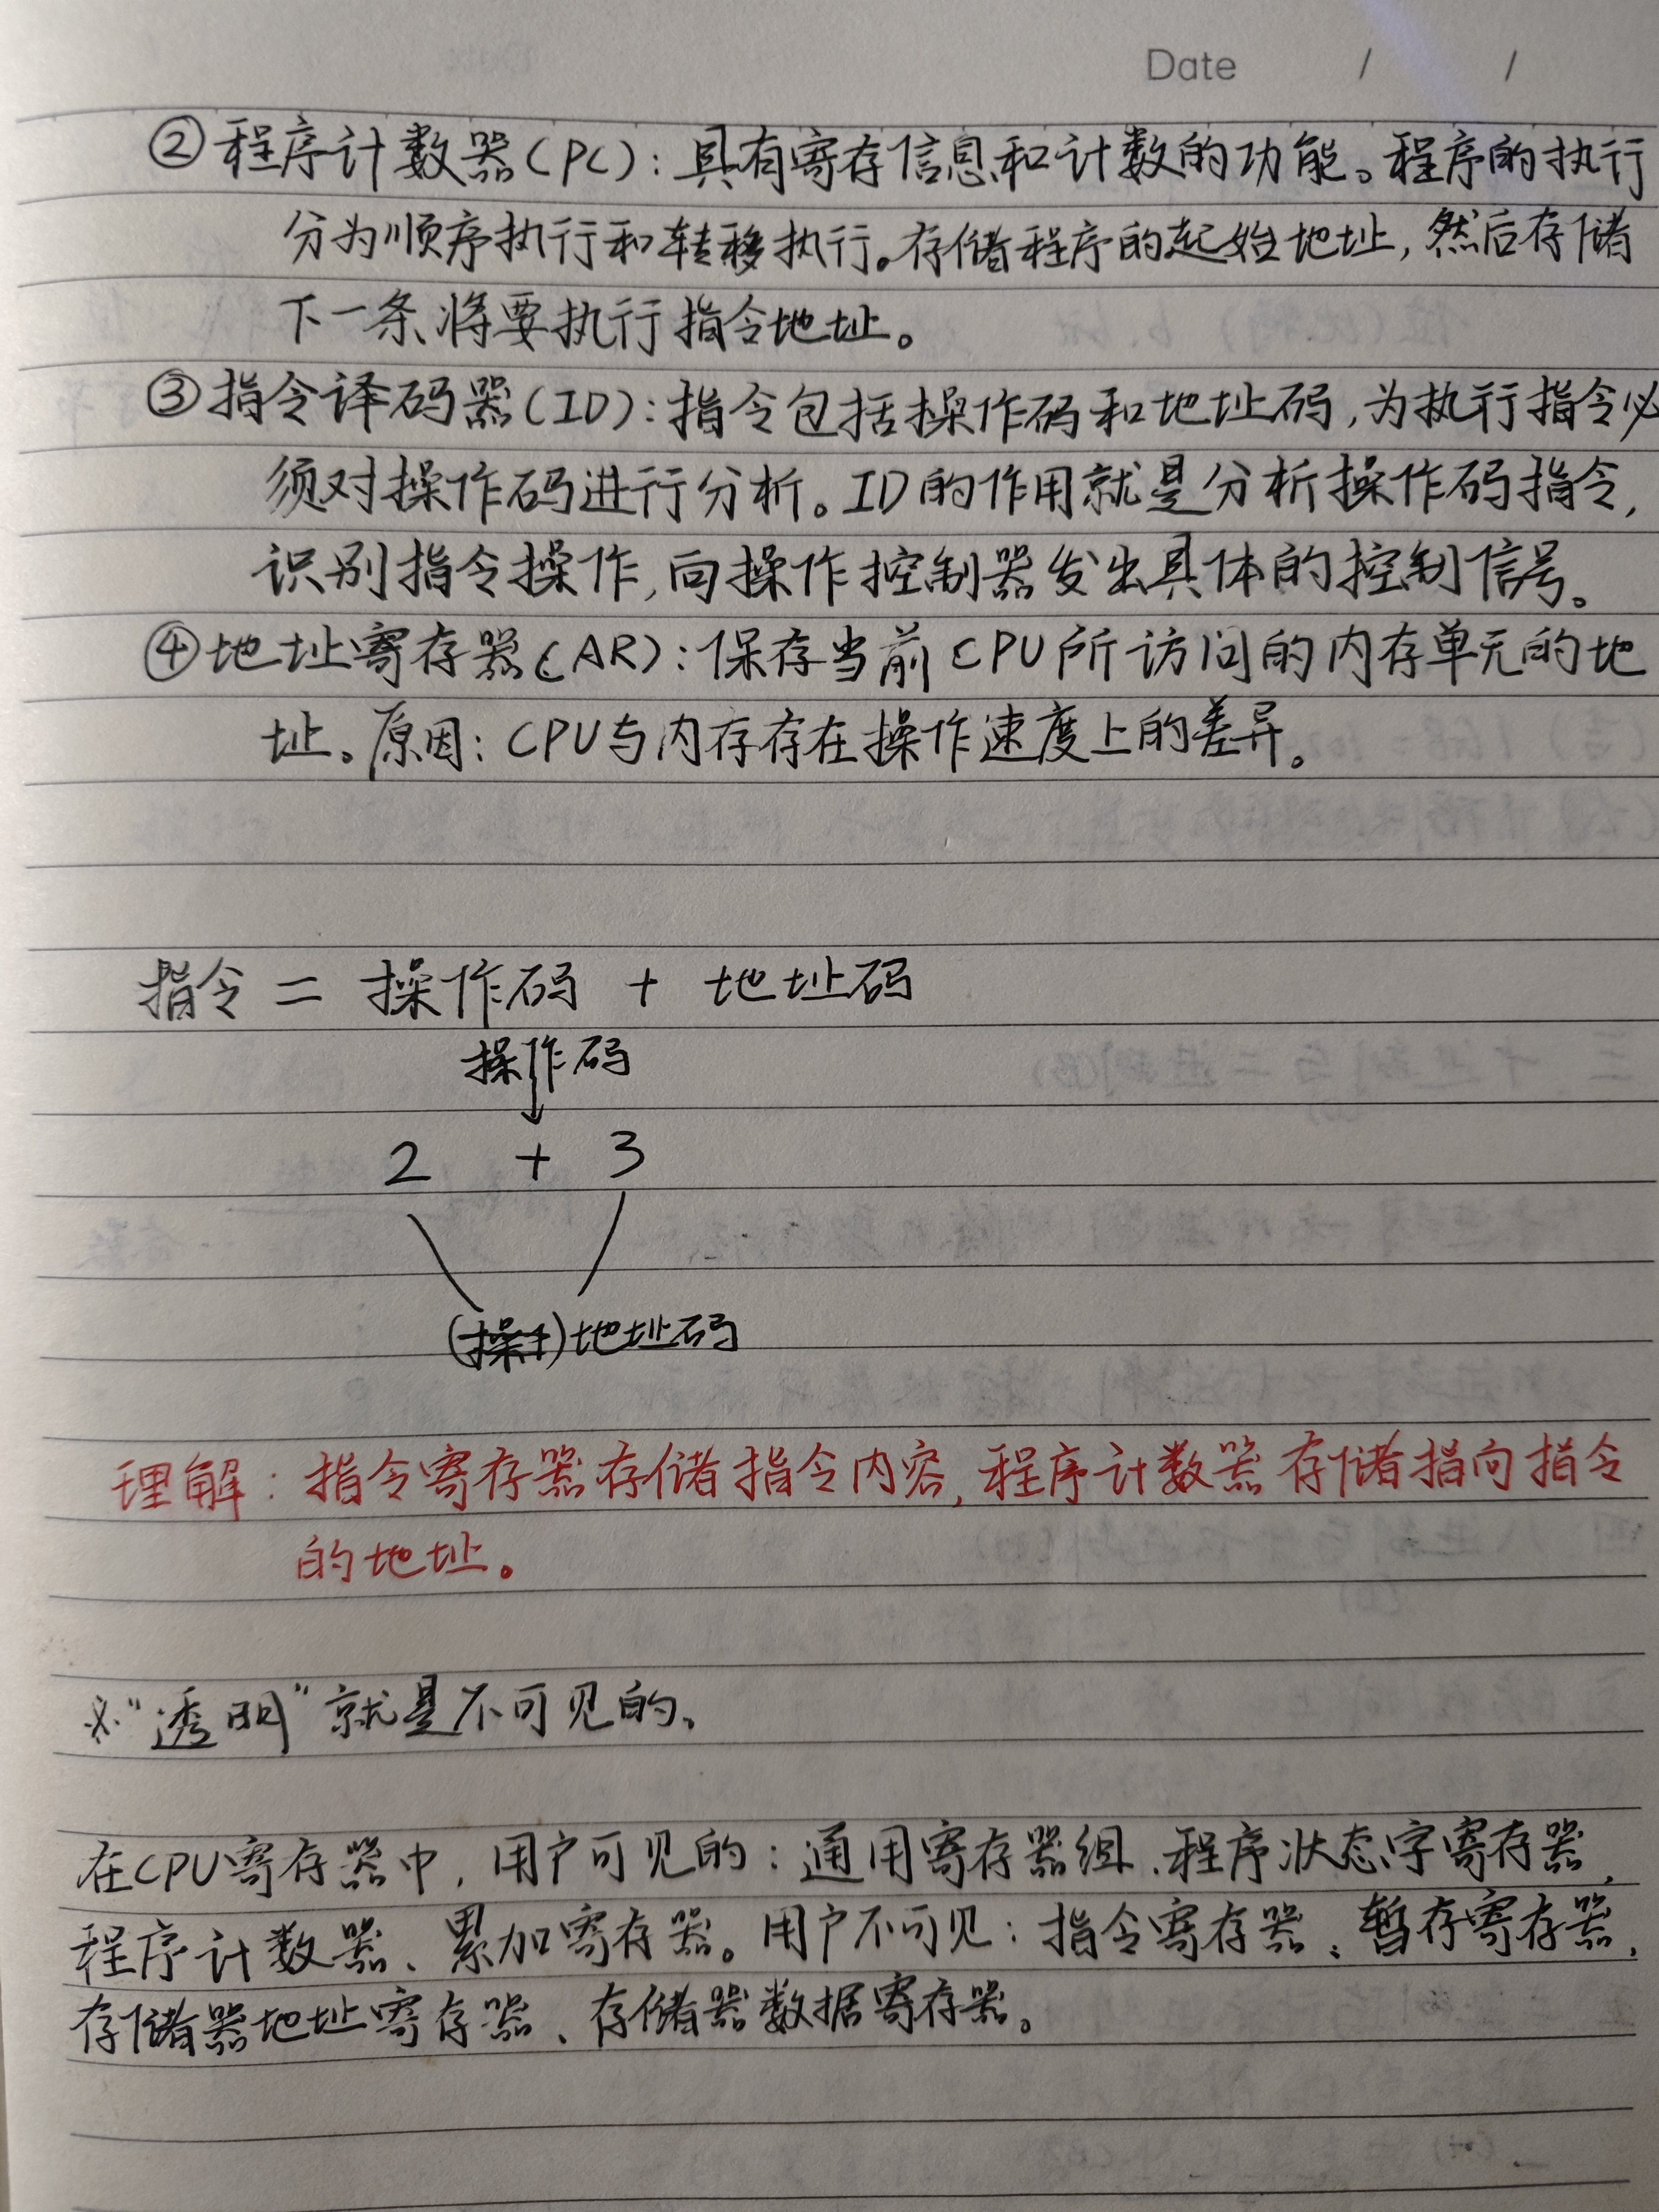 Date / /
②程序计数器(PC):具有寄存信息和计数的功能。程序的执行
分为顺序执行和转移执行。存储程序的起始地址,然后存储
下一条将要执行指令地址。
③指令译码器(ID):指令包括操作码和地址码,为执行指令必
须对操作码进行分析。ID的作用就是分析操作码指令,
识别指令操作,向操作控制器发出具体的控制信号。
④地址寄存器(AR):保存当前CPU所访问的内存单元的地
址。原因:CPU与内存存在操作速度上的差异。
指令 = 操作码 + 地址码
操作码
2 + 3
地址码
理解:指令寄存器存储指令内容,程序计数器存储指向指令
的地址。
※“透明”就是不可见的。
在CPU寄存器中,用户可见的:通用寄存器组、程序状态字寄存器、
程序计数器、累加寄存器。用户不可见:指令寄存器、暂存寄存器、
存储器地址寄存器、存储器数据寄存器。